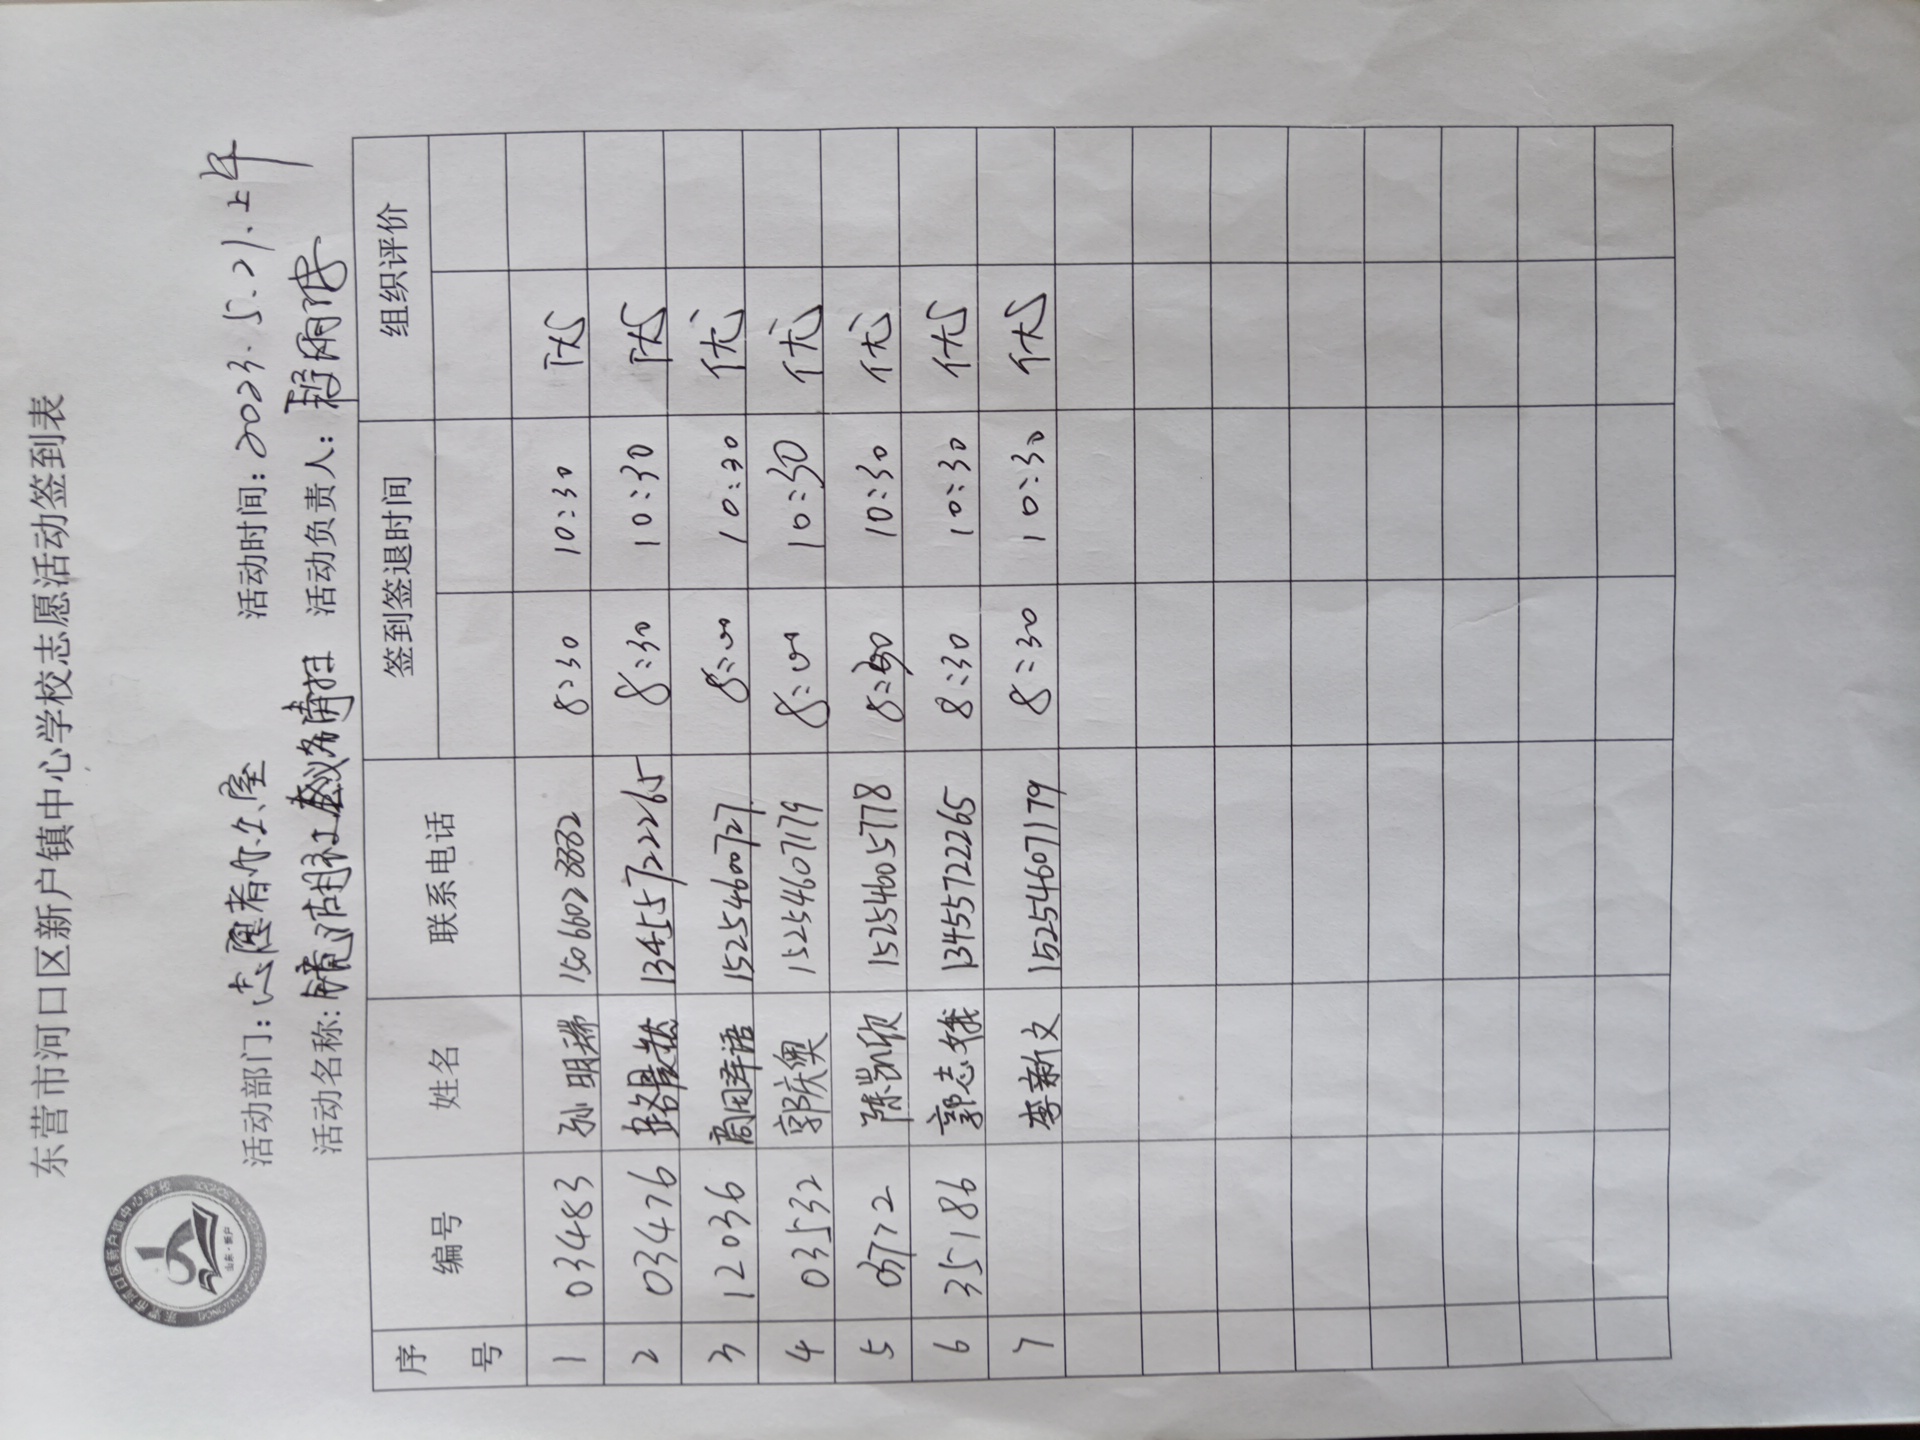 东营市河口区新户镇中心学校志愿活动签到表
东营市河口区新户镇中心学校
山东·新户
活动部门: 志愿者 屋 活动时间: 2023.5.21.上午
活动名称: 活动负责人:
序号 编号 姓名 联系电话 签到签退时间 组织评价
1 03483 孙明瑞 150660 8:30 10:30 优
2 03476 路晨 13455722265 8:30 10:30 优
3 12036 15254600727 8:00 10:30 优
4 03532 郭庆奥 15254607179 8:00 10:30 优
5 03772 陈凯欣 15254605778 8:30 10:30 优
6 35186 郭志娥 13455722265 8:30 10:30 优
7 李新文 15254607179 8:30 10:30 优